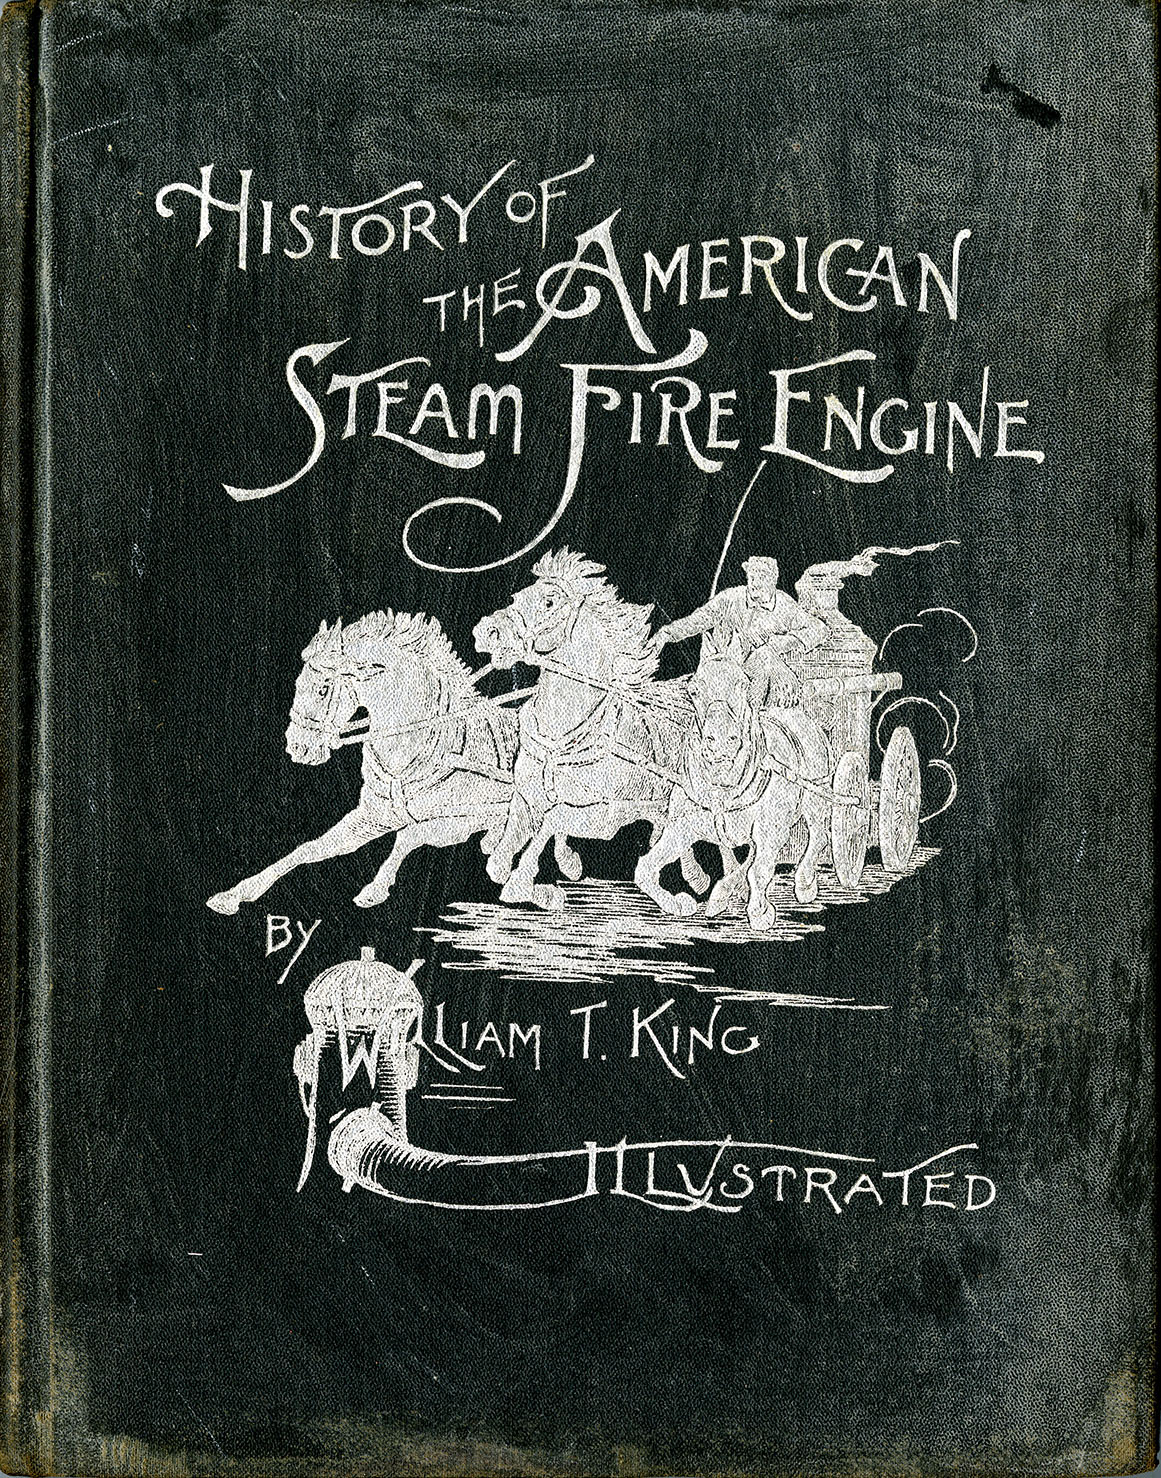 HISTORY OF
THE AMERICAN
STEAM FIRE ENGINE
BY
WILLIAM T. KING
ILLVSTRATED